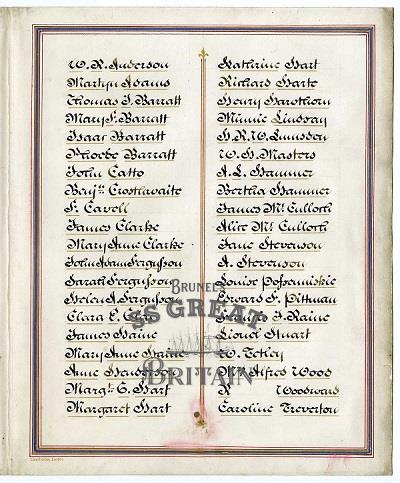 W. R. Anderson
Martyn Adams
Thomas J. Barratt
Mary F. Barratt
Isaac Barratt
Phoebe Barratt
John Catto
Benj.n Crosthwaite
F. Cavell
James Clarke
Mary Anne Clarke
John Adam Fergusson
Sarah Fergusson
Helen A. Fergusson
Clara E.
James Haine
Mary Anne Haine
Anne
Marg.t C. Hart
Margaret Hart
Kathrine Hart
Richard Harte
Henry Hawthorn
Minnie Lindsay
H. R. W. Lumsden
W. H. Masters
A. L. Hammer
Bertha Hammer
James Mc Culloch
Alice Mc Culloch
Jane Stevenson
A. Stevenson
Louise
Edward F. Pitman
J. Raine
Lionel Stuart
W. Tetley
Alfred Wood
R Woodward
Caroline Treverton
BRUNEL'S
SS GREAT
BRITAIN